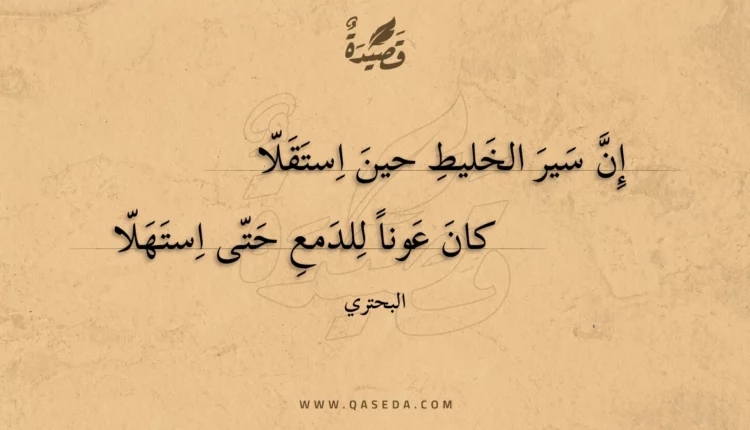 قَصِيدَةٌ
إِنَّ سَيرَ الخَليطِ حينَ اِستَقَلّا
كانَ عَوناً لِلدَمعِ حَتّى اِستَهَلّا
البحتري
WWW.QASEDA.COM